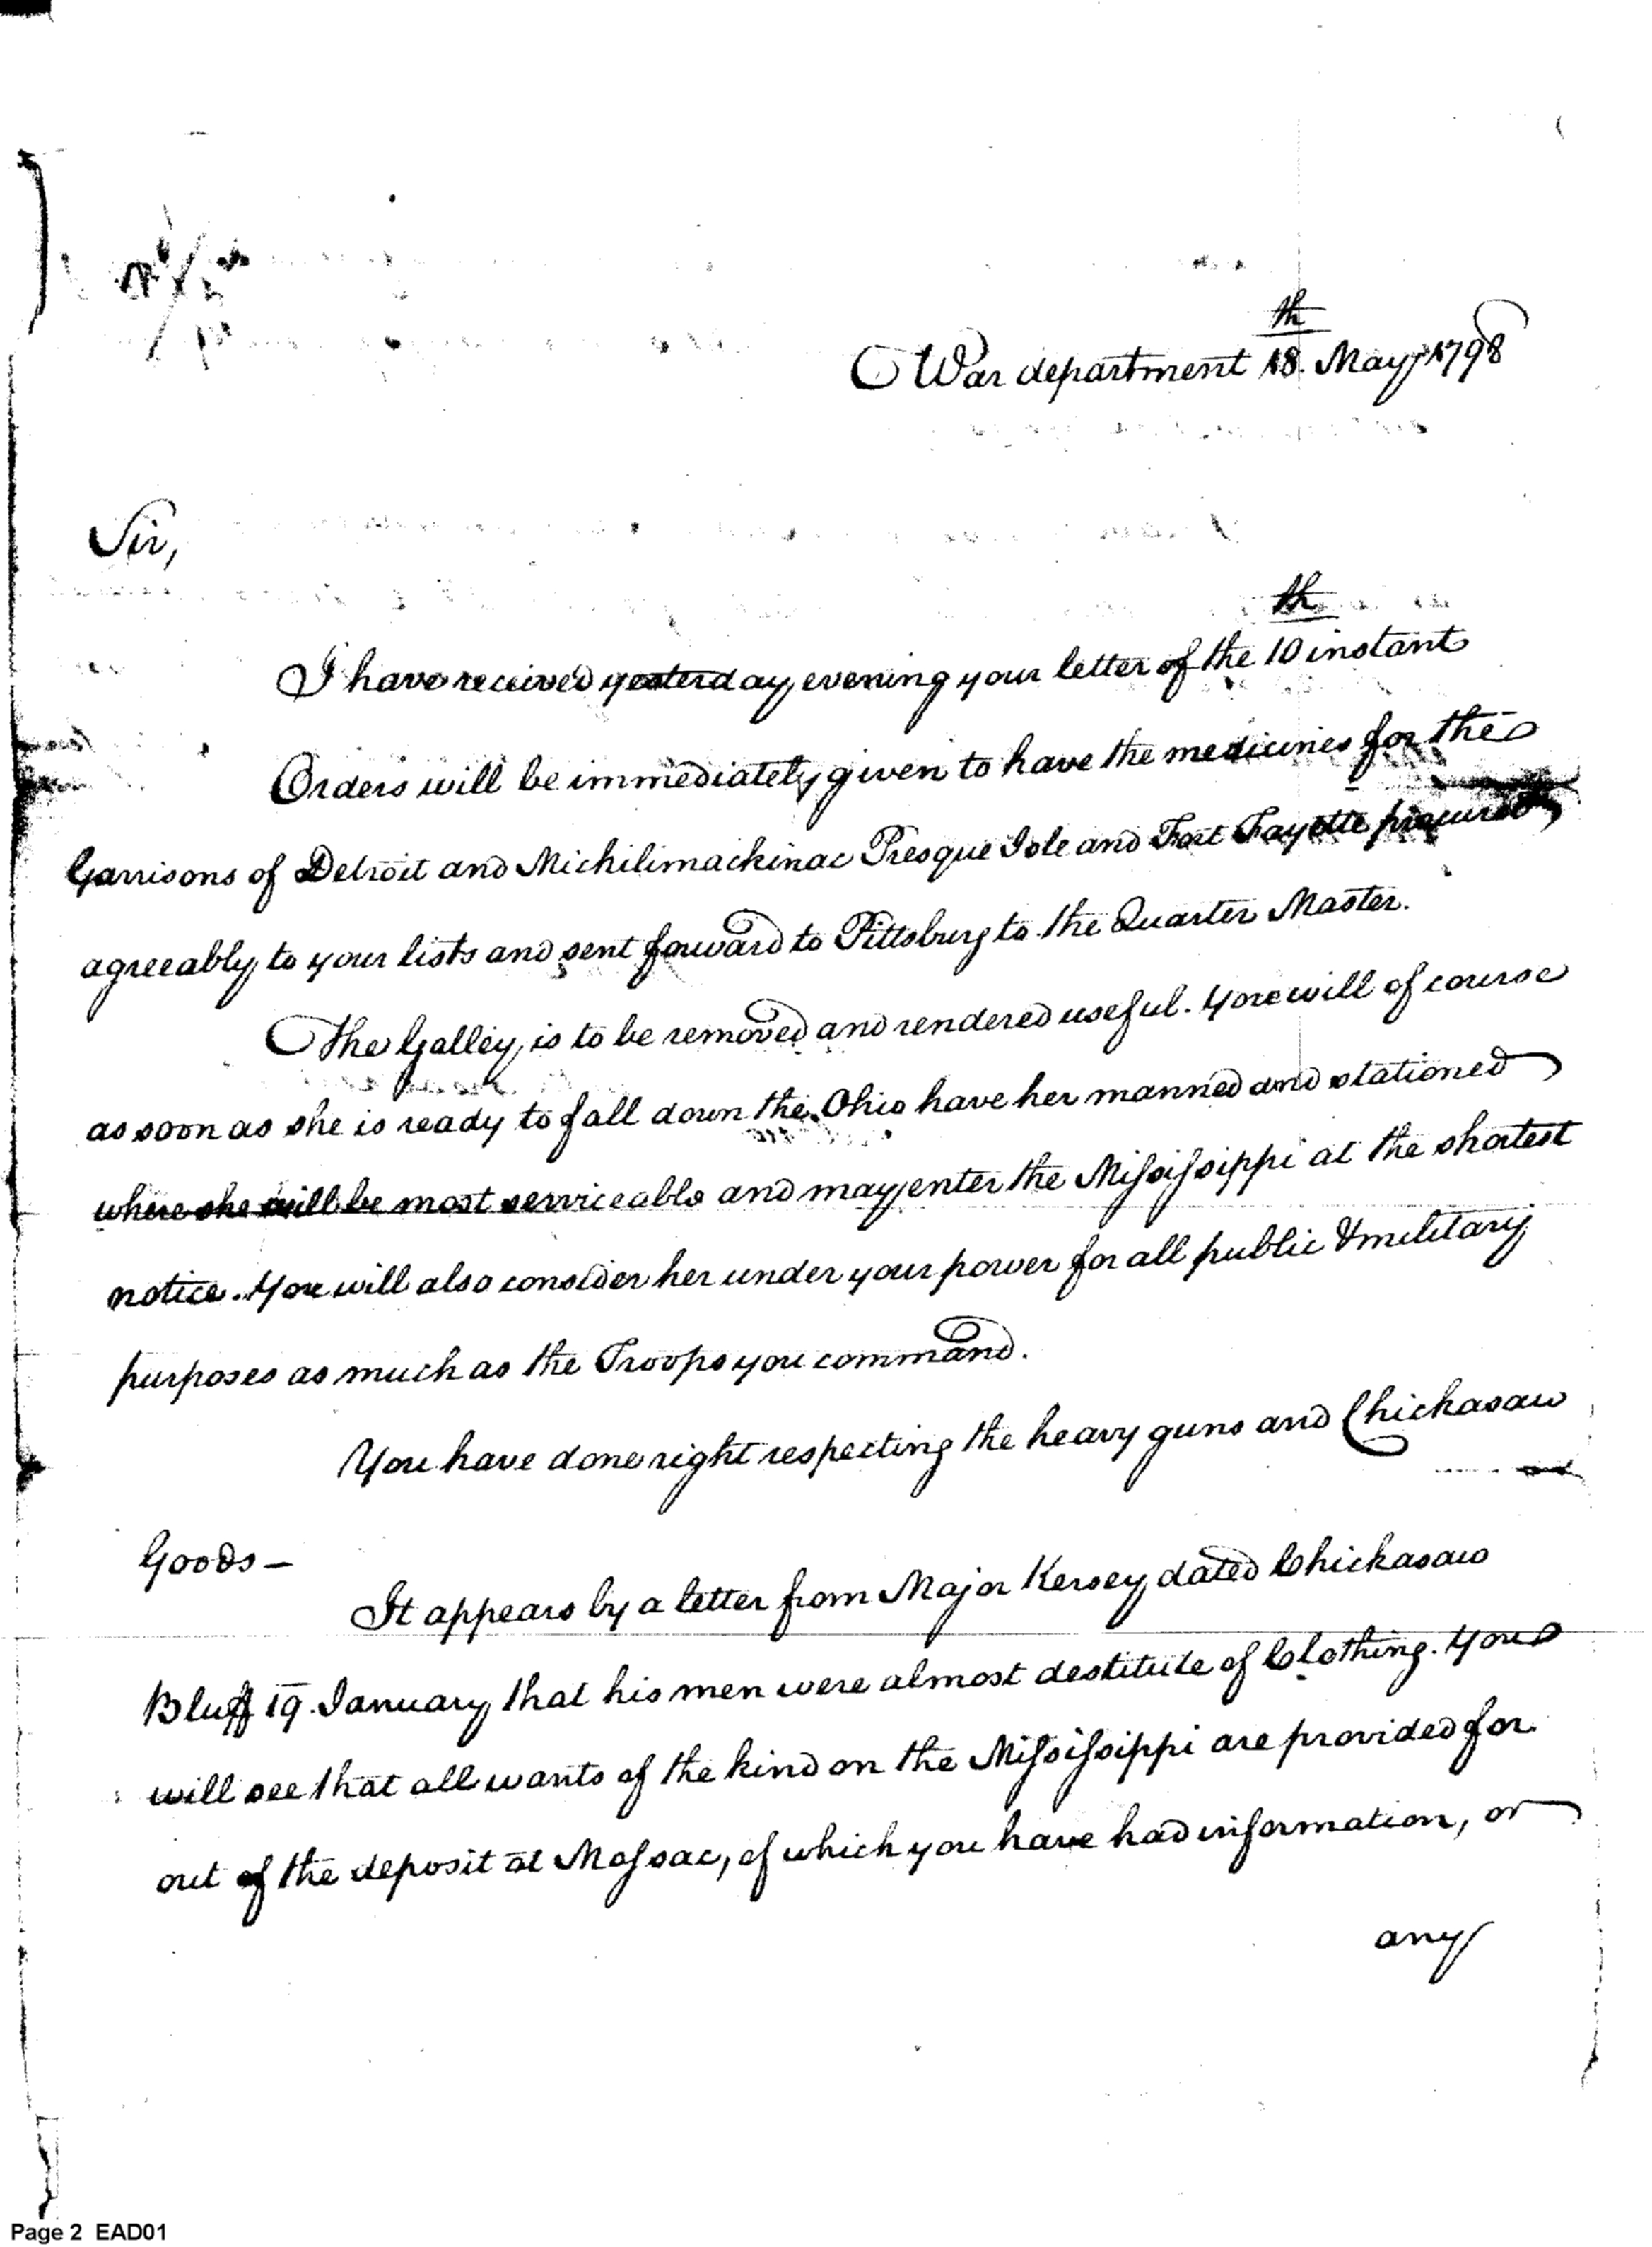 War department 18th. May 1798
Sir,
I have received yesterday evening your letter of the 10th instant
Orders will be immediately given to have the medicines for the
Garrisons of Detroit and Michilimackinac Presque Isle and Fort Fayette procured
agreeably to your lists and sent forward to Pittsburg to the Quarter Master.
The Galley is to be removed and rendered useful. You will of course
as soon as she is ready to fall down the Ohio have her manned and stationed
where she will be most serviceable and may enter the Mississippi at the shortest
notice. You will also consider her under your power for all public & military
purposes as much as the Troops you command.
You have done right respecting the heavy guns and Chickasaw
Goods —
It appears by a letter from Major Kersey dated Chickasaw
Bluff 19. January that his men were almost destitute of Clothing. You
will see that all wants of the kind on the Mississippi are provided for
out of the deposit at Massac, of which you have had information, or
any
Page 2 EAD01